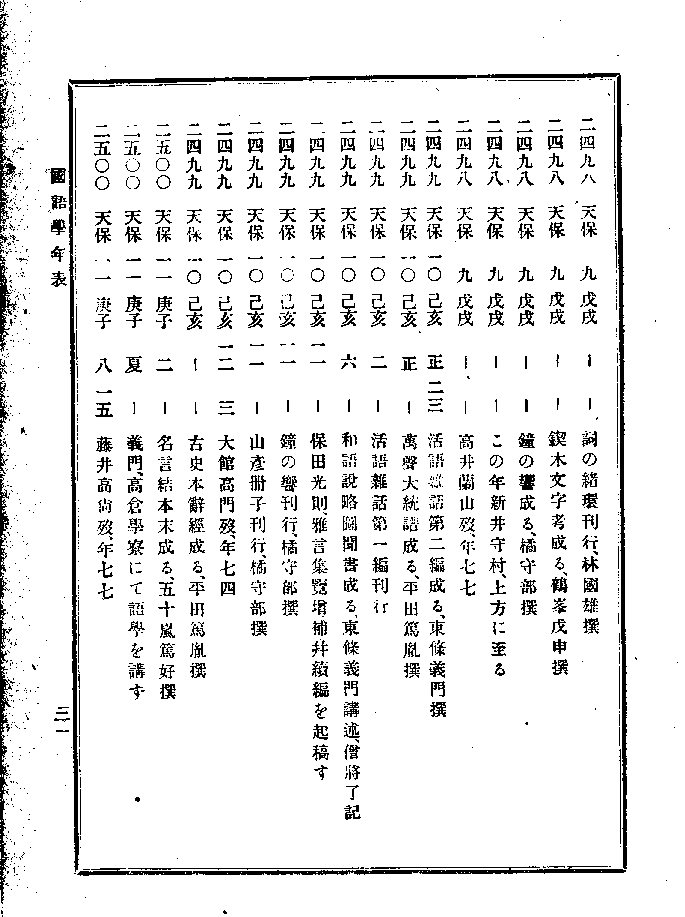 二四九八 天保 九 戊戌 ー ー 詞の緒環刊行、林國雄撰
二四九八 天保 九 戊戌 ー ー 鍥木文字考成る、鶴峯戊申撰
二四九八 天保 九 戊戌 ー ー 鐘の響成る、橘守部撰
二四九八 天保 九 戊戌 ー ー この年新井守村、上方に至る
二四九八 天保 九 戊戌 ー ー 高井蘭山歿、年七七
二四九九 天保 一〇 己亥 正 二三 活語雜話第二編成る、東條義門撰
二四九九 天保 一〇 己亥 正 ー 萬聲大統譜成る、平田篤胤撰
二四九九 天保 一〇 己亥 二 ー 活語雜話第一編刊行
二四九九 天保 一〇 己亥 六 ー 和語說略圖聞書成る、東條義門講述、僧將了記
二四九九 天保 一〇 己亥 一一 ー 保田光則、雅言集覽增補幷續編を起稿す
二四九九 天保 一〇 己亥 一一 ー 鐘の響刊行、橘守部撰
二四九九 天保 一〇 己亥 一一 ー 山彥册子刊行、橘守部撰
二四九九 天保 一〇 己亥 一二 三 大館高門歿、年七四
二四九九 天保 一〇 己亥 ー ー 古史本辭經成る、平田篤胤撰
二五〇〇 天保 一一 庚子 二 ー 名言結本末成る、五十嵐篤好撰
二五〇〇 天保 一一 庚子 夏 ー 義門、高倉學寮にて語學を講す
二五〇〇 天保 一一 庚子 八 一五 藤井高尙歿、年七七
國語學年表
三一